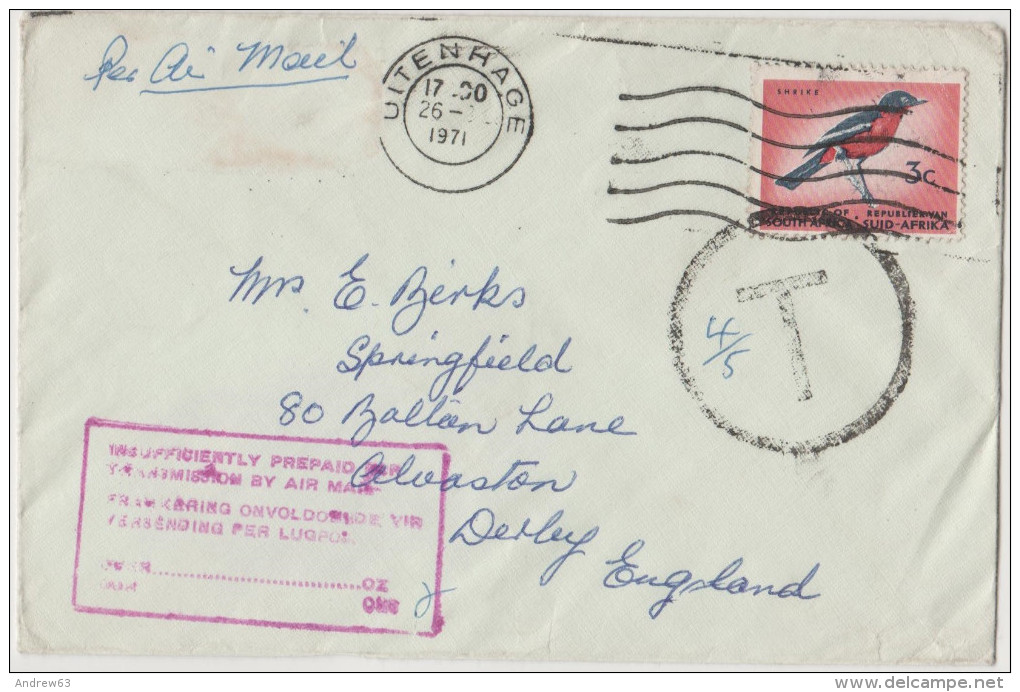 Per Air Mail
UITENHAGE
17.00
26
1971
SHRIKE
3c
REPUBLIC OF SOUTH AFRICA . REPUBLIEK VAN SUID-AFRIKA
T
4/5
Mrs E. Birks
Springfield
80 Lane
Alvaston
Derby
England
INSUFFICIENTLY PREPAID FOR
TRANSMISSION BY AIR MAIL
FRANKERING ONVOLDOENDE VIR
VERSENDING PER LUGPOS
OVER..............................OZ
ONS
Andrew63
www.delcampe.net